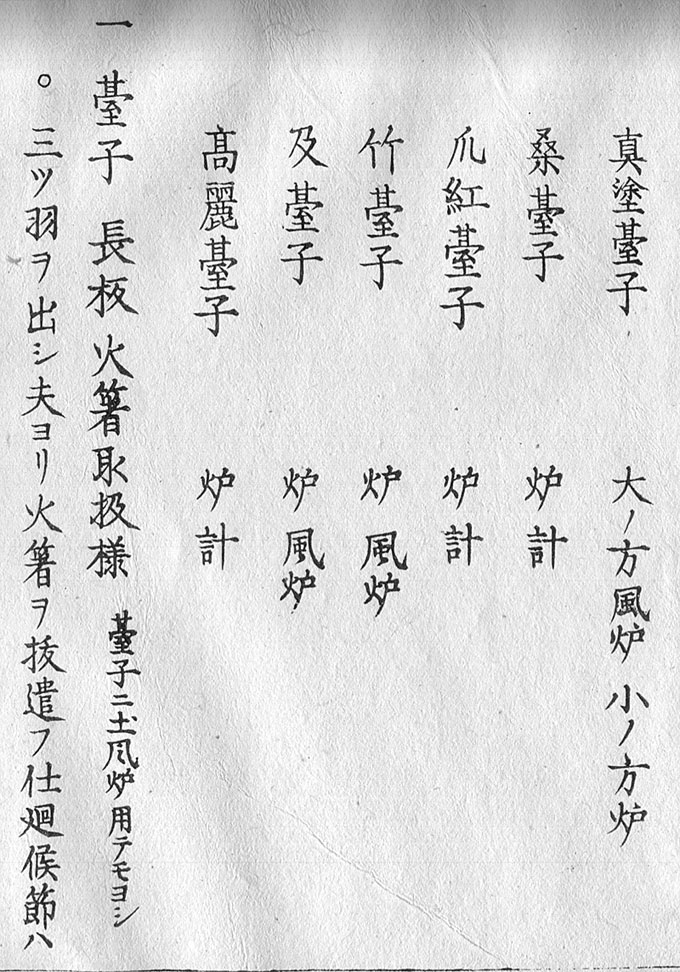 真塗臺子 大ノ方風炉 小ノ方炉
桑臺子 炉計
爪紅臺子 炉計
竹臺子 炉 風炉
及臺子 炉 風炉
髙麗臺子 炉計
一 臺子 長板 火箸取扱様 臺子ニ土風炉用テモヨシ
。三ツ羽ヲ出シ夫ヨリ火箸ヲ抜遣フ仕廻候節ハ